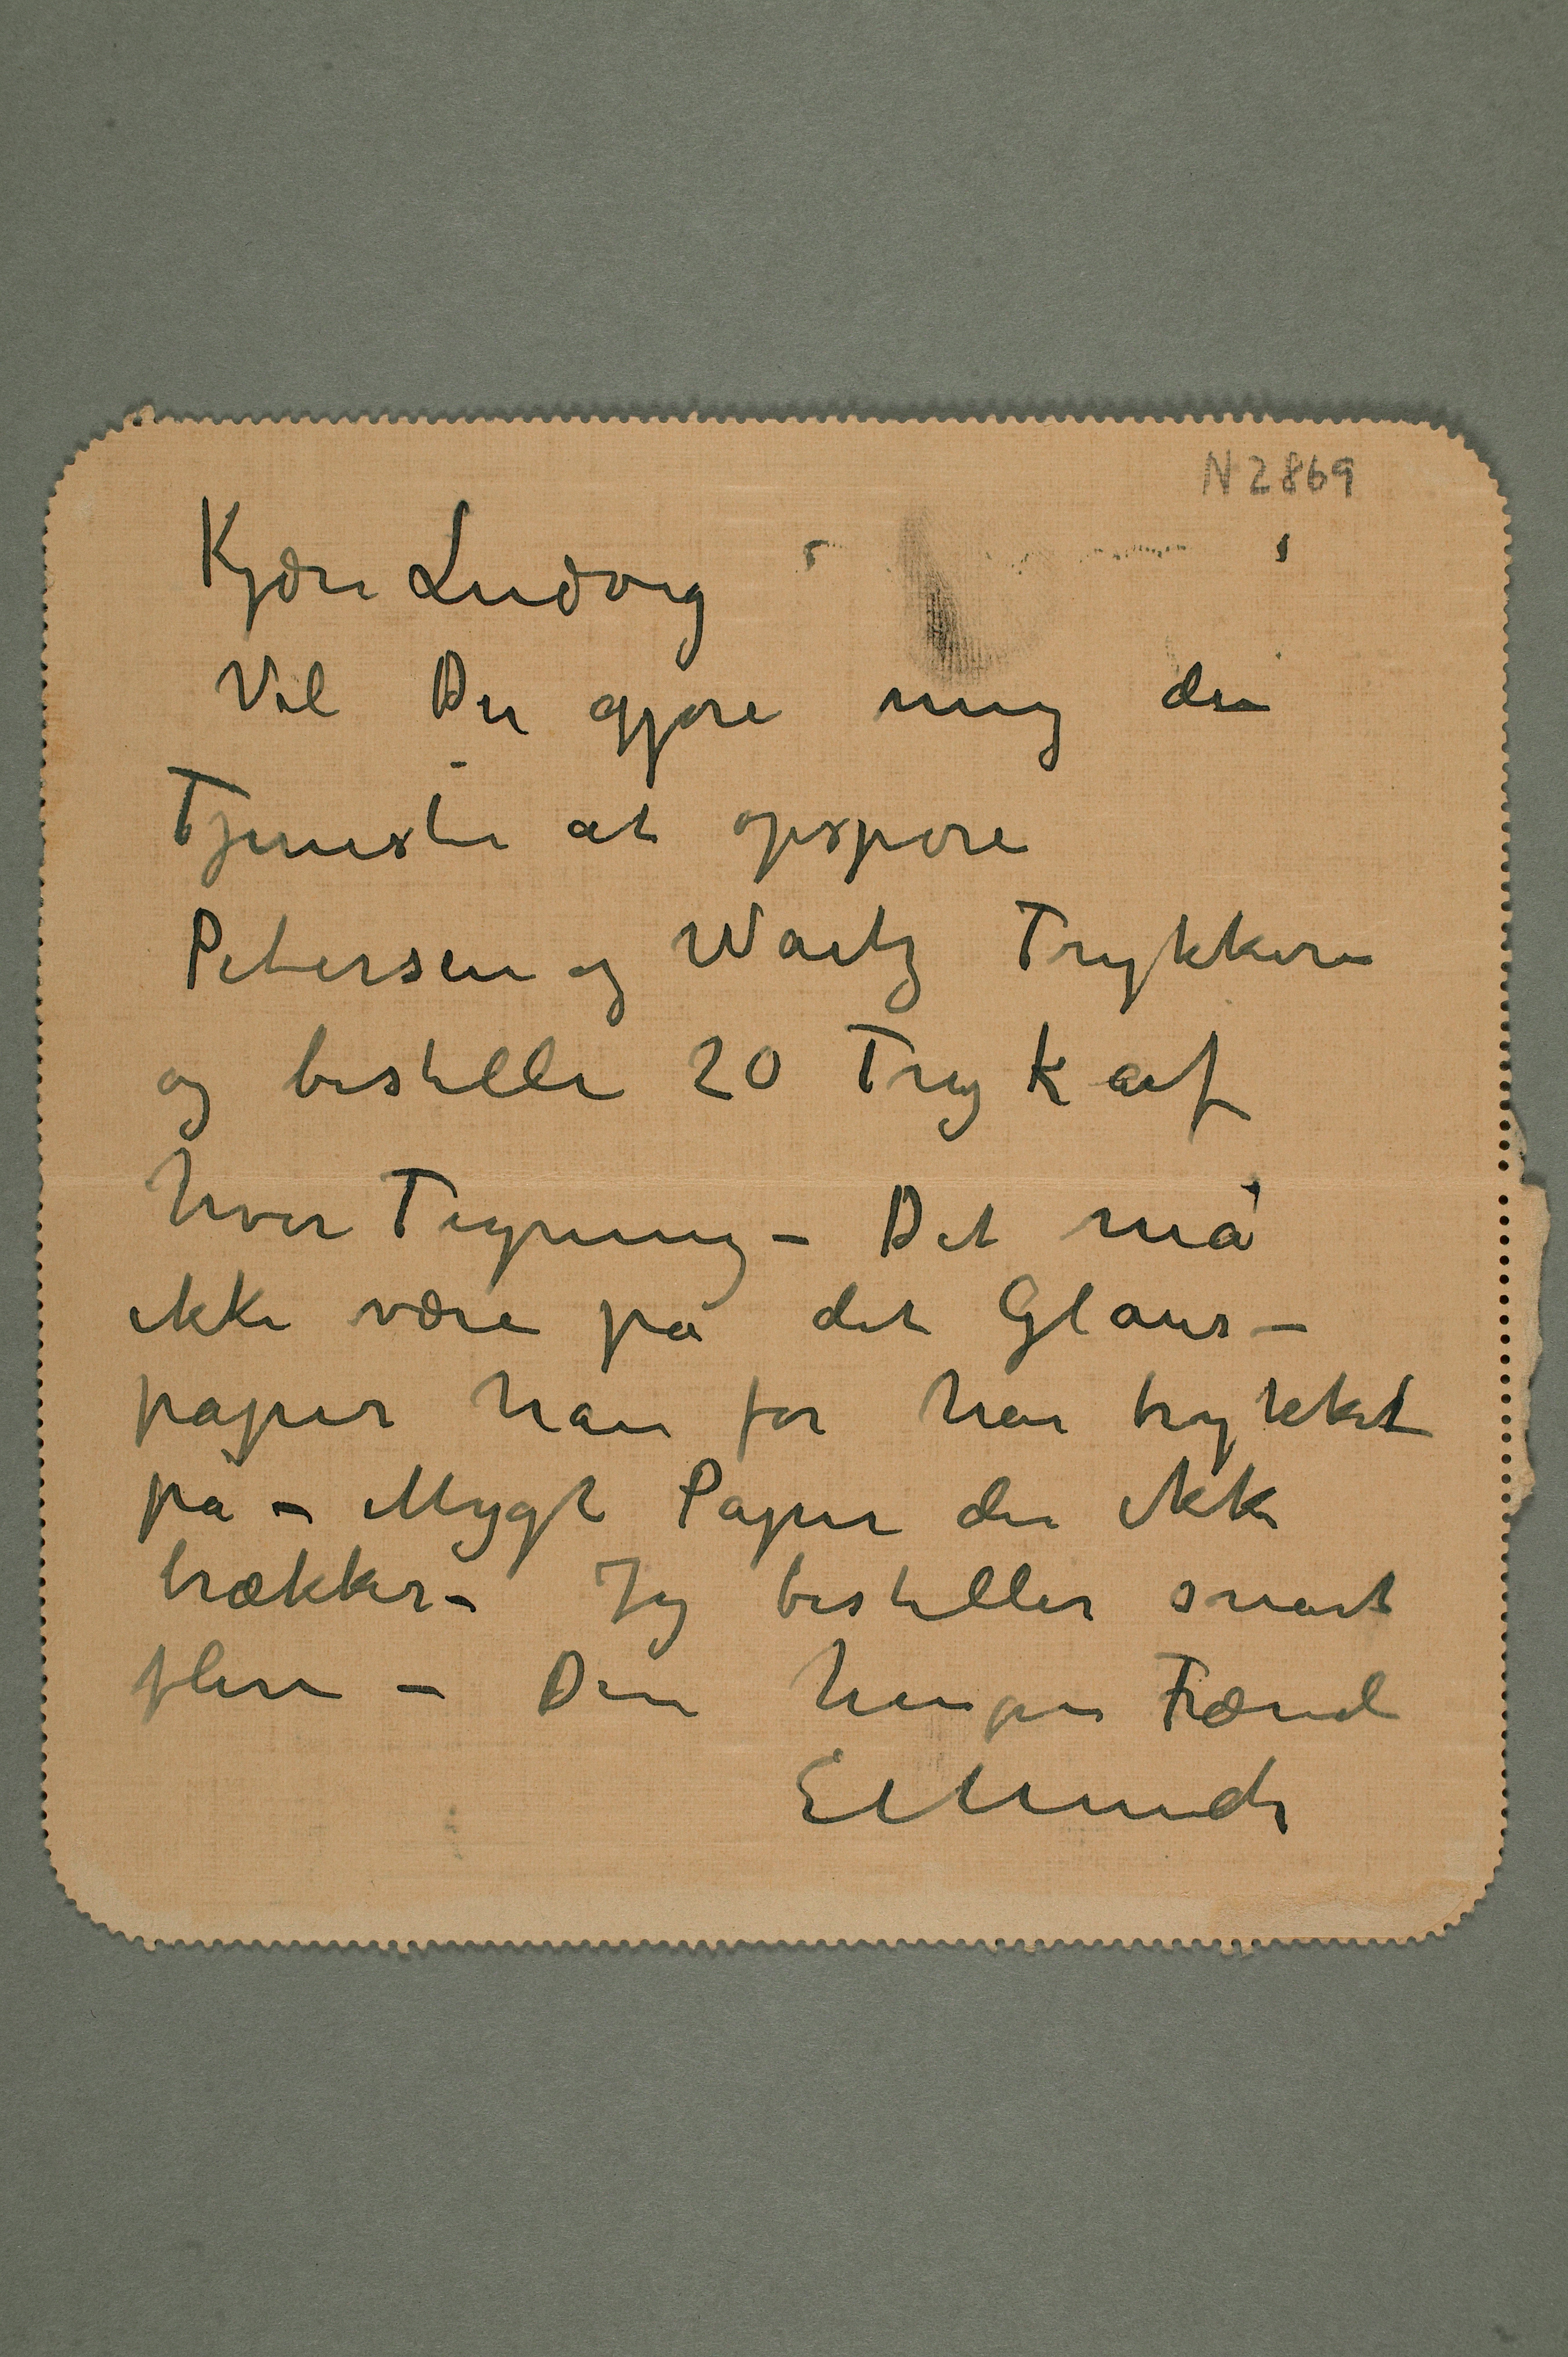 N 2869
Kjære Ludvig
Vil Du gjøre mig den
Tjeneste at opspore
Petersen og Waitz Trykkere
og bestille 20 Tryk af
hver Tegning – Det må
ikke være på det Glans–
papir han før har trykket
på – Mygt Papir der ikke
brækker – Jeg bestiller snart
flere – Din hengivne Frænde
E Munch